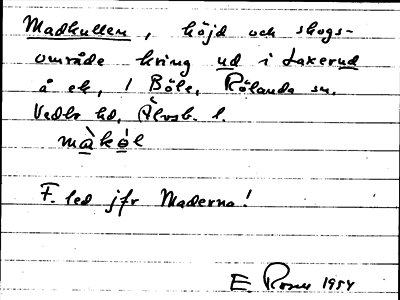 Madkullen, höjd och skogs-
område kring ud i Laxerud
å ek, 1 Böle, Rölanda sn.
Vedbo hd, Älvsb. l.
màkól
F. led jfr Maderna!
E Rosen 1954